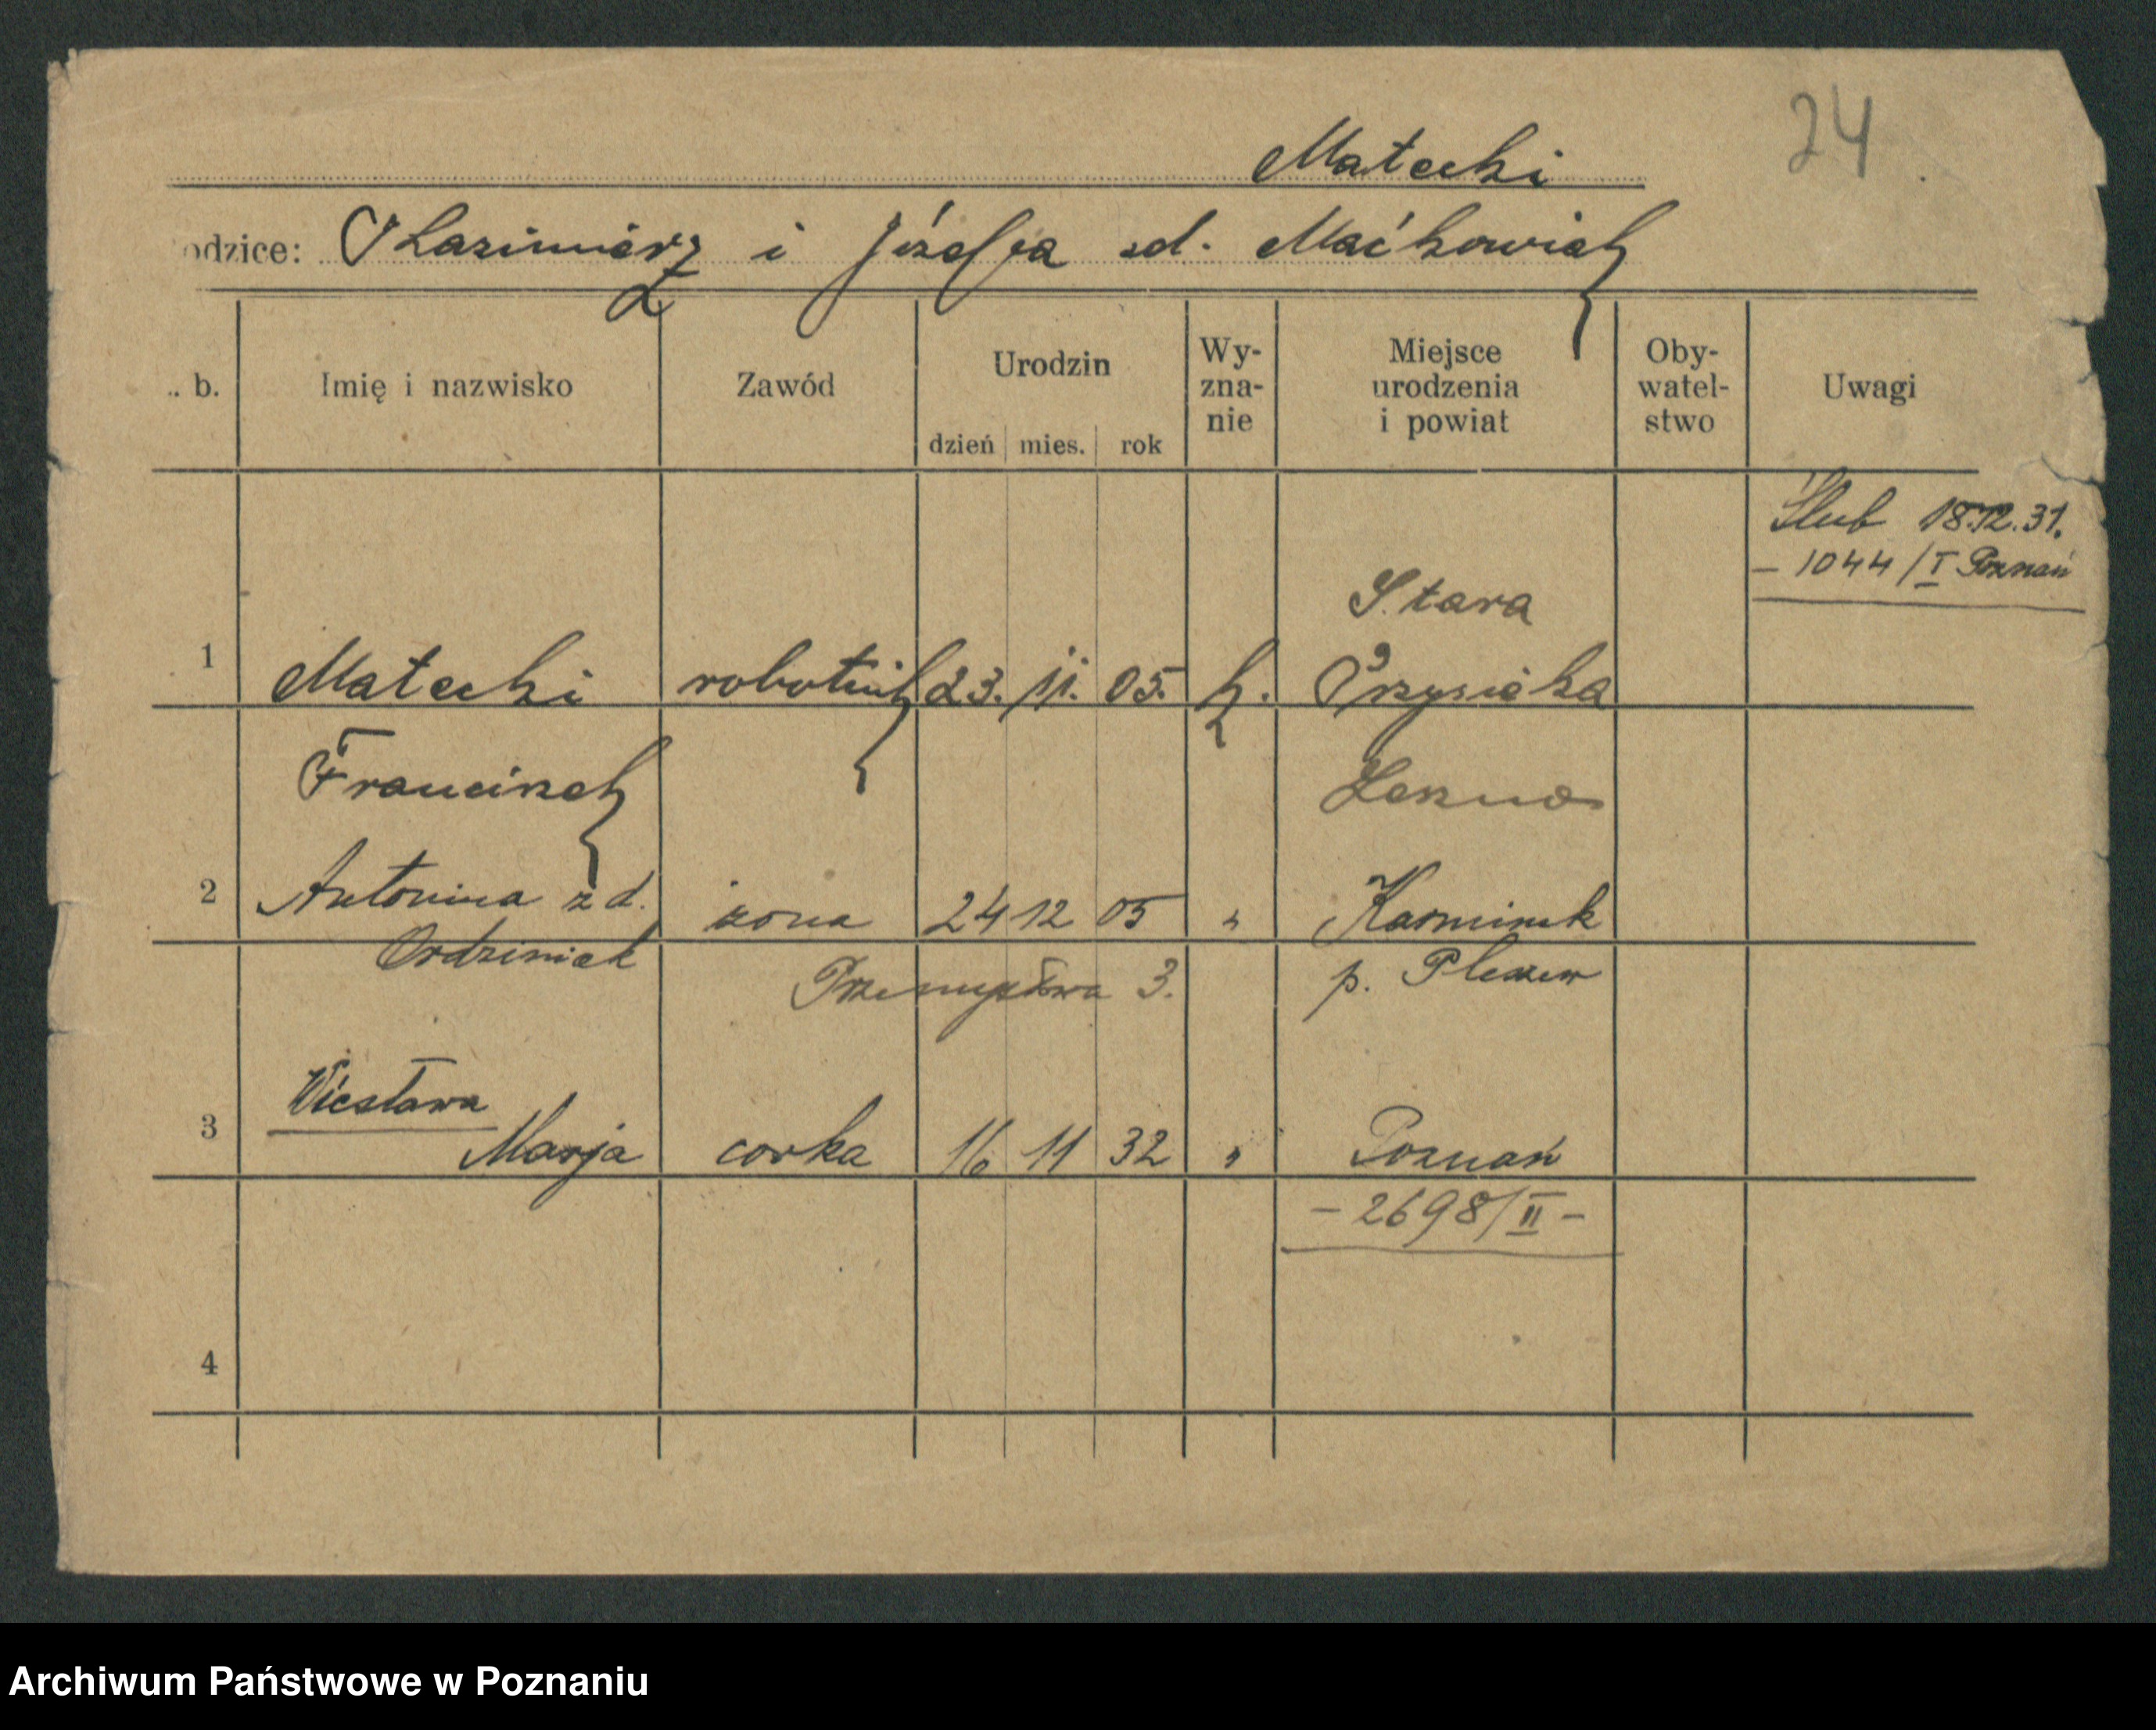 24
Małecki
odzice: Kazimierz i Józefa zd. Maćkowiak
. b. Imię i nazwisko Zawód Urodzin dzień mies. rok Wy-zna-nie Miejsce urodzenia i powiat Oby-watel-stwo Uwagi
Ślub 18.12.31.
- 1044/I Poznań
Stara
1 Małecki robotnik 23. 11. 05. k. Przysieka
Franciszek Leszno
2 Antonina z d. żona 24 12 05 " Karminek
Ordziniak p. Pleszew
Przemysłowa 3.
Wiesława
3 Marja corka 16 11 32 " Poznań
- 2698/II -
4
Archiwum Państwowe w Poznaniu